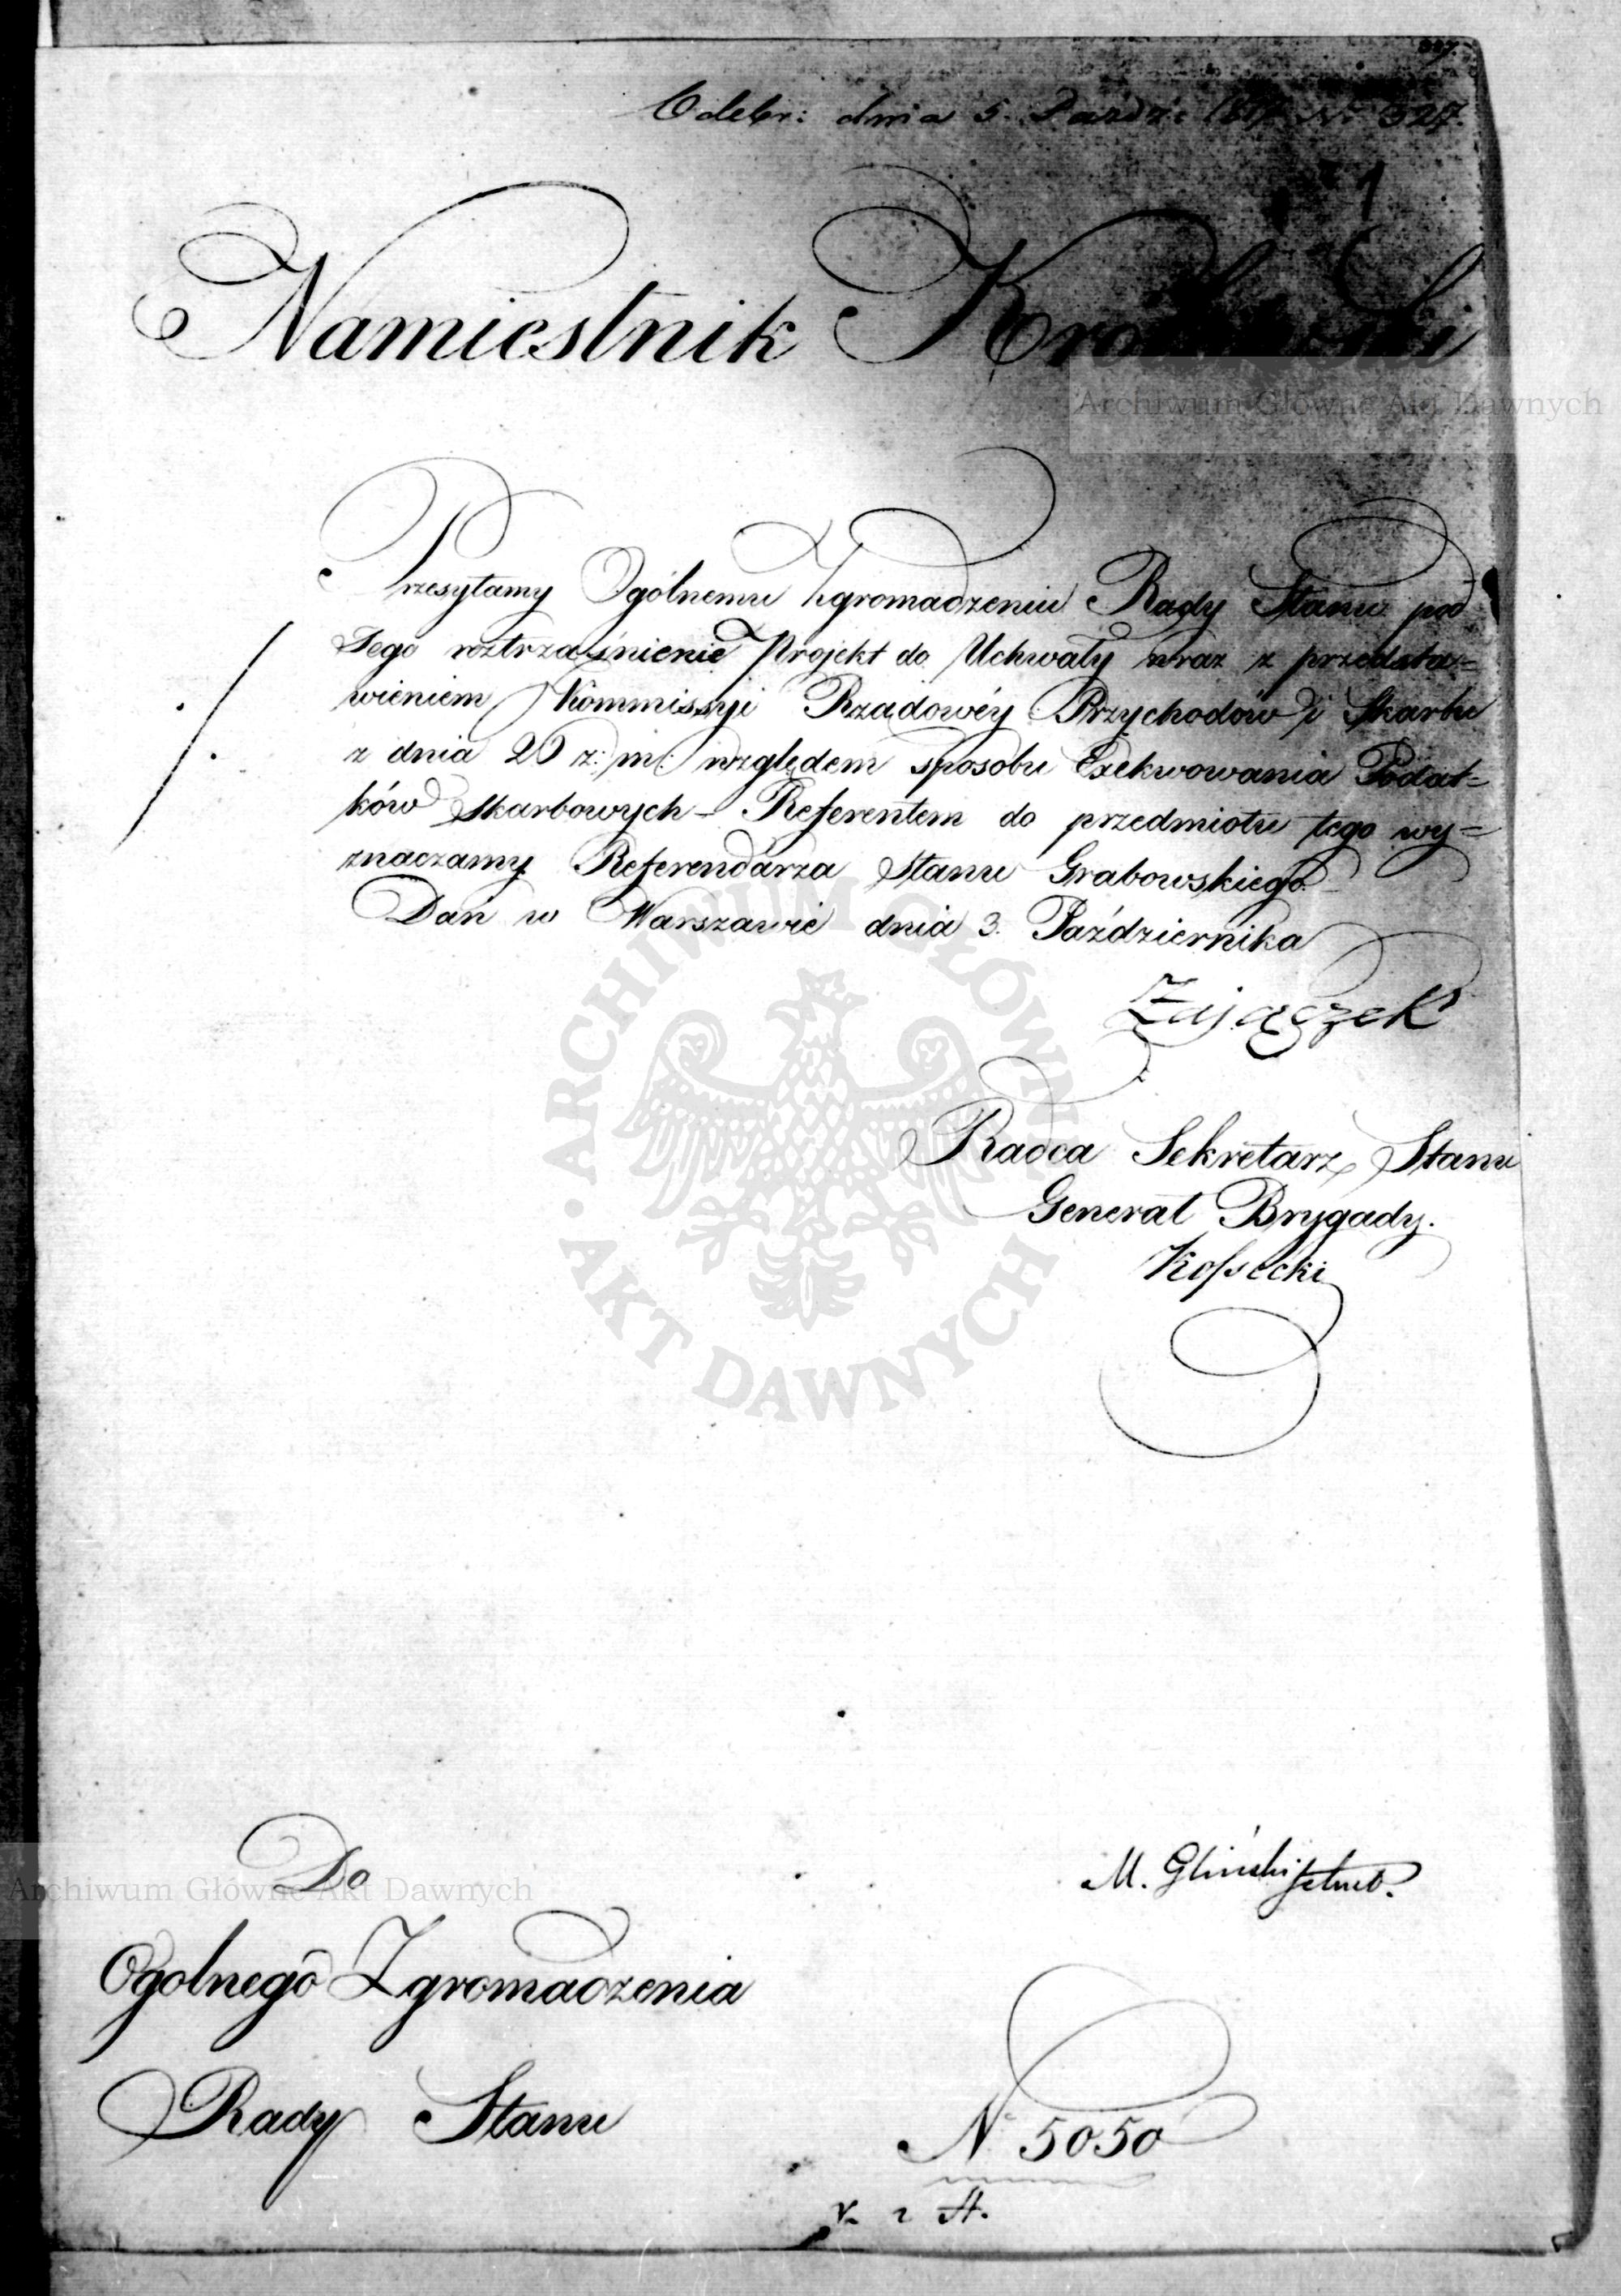 327.
Odebr: dnia 5. Paźdz: 1817 Nr 327.
1
Namiestnik Królewski
Archiwum Główne Akt Dawnych
Przesyłamy Ogólnemu Zgromadzeniu Rady Stanu pod
Jego roztrząśnienie Projekt do Uchwały wraz z przedsta=
wieniem Kommissyi Rządowéy Przychodów i Skarbu
z dnia 20 z: m: względem sposobu Exekwowania Podat=
ków Skarbowych – Referentem do przedmiotu tego wy=
znaczamy Referendarza Stanu Grabowskiego.
Dań w Warszawie dnia 3. Października
Zajączek
Radca Sekretarz Stanu
Generał Brygady.
Kossecki
ARCHIWUM GŁÓWNE AKT DAWNYCH
Do
M. Gliński
Archiwum Główne Akt Dawnych
Ogolnego Zgromadzenia
Rady Stanu
N 5050